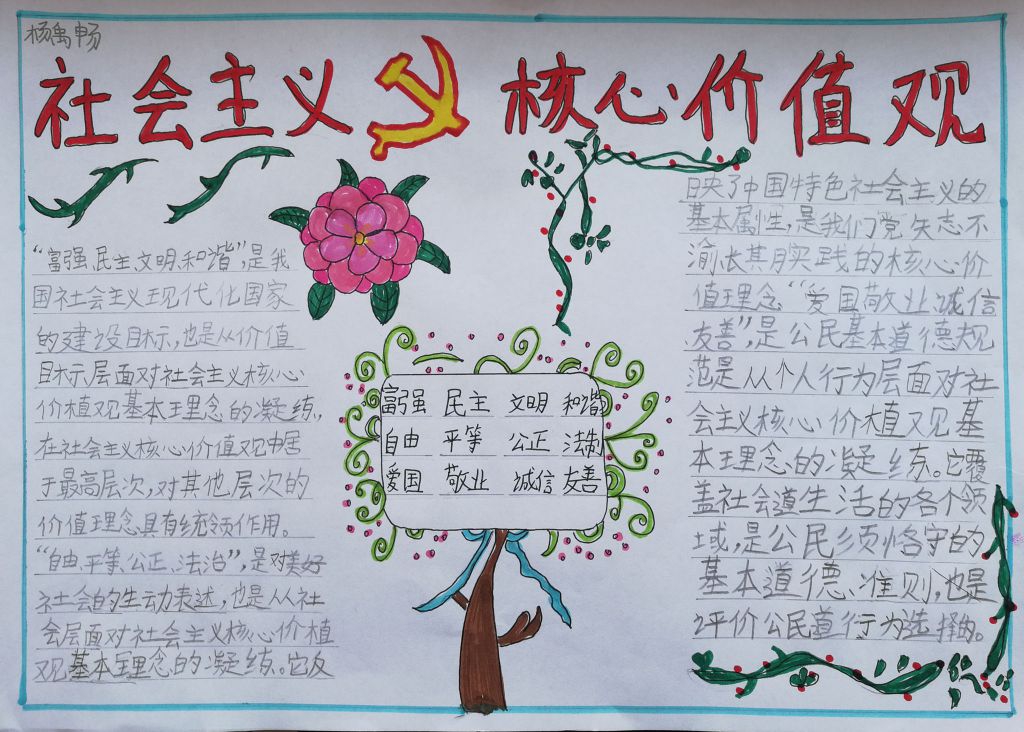 杨禹畅
社会主义 核心价值观
“富强、民主、文明、和谐”,是我
国社会主义现代化国家
的建设目标,也是从价值
目标层面对社会主义核心
价值观基本理念的凝练,
在社会主义核心价值观中居
于最高层次,对其他层次的
价值理念具有统领作用。
“自由、平等、公正、法治”,是对美好
社会的生动表述,也是从社
会层面对社会主义核心价值
观基本理念的凝练。它反
富强 民主 文明 和谐
自由 平等 公正 法制
爱国 敬业 诚信 友善
映了中国特色社会主义的
基本属性,是我们党矢志不
渝、长期实践的核心价
值理念“爱国、敬业、诚信
、友善”,是公民基本道德规
范是从个人行为层面对社
会主义核心价值观基
本理念的凝练。它覆
盖社会道生活的各个领
域,是公民须恪守的
基本道德、准则,也是
评价公民道行为选择的。